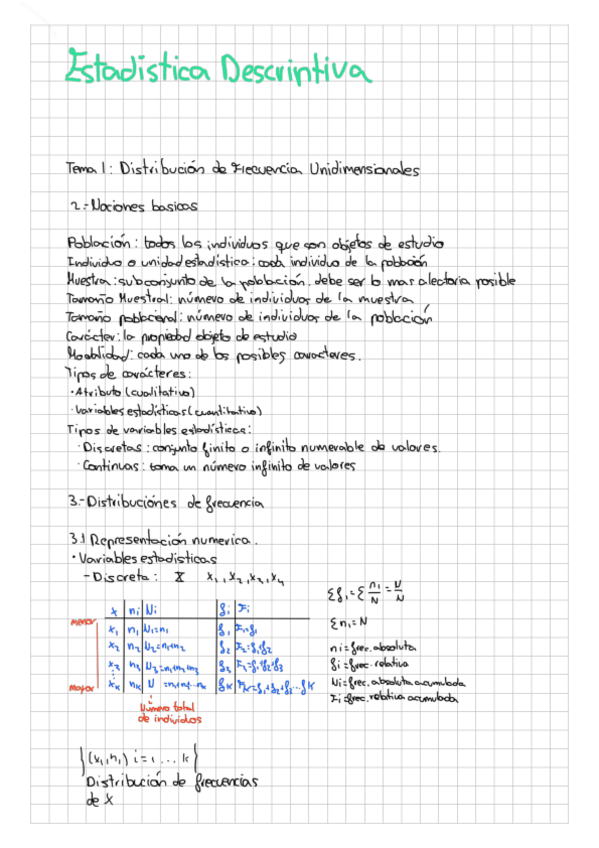 Estadistica Descriptiva
Tema 1: Distribución de Frecuencia Unidimensionales
2.- Nociones basicas
Población: todos los individuos que son objetos de estudio
Individuo o unidad estadística: cada individuo de la población
Muestra: subconjunto de la población. debe ser lo mas aleatoria posible
Tamaño Muestral: número de individuos de la muestra
Tamaño poblacional: número de individuos de la población
Carácter: la propiedad objeto de estudio
Modalidad: cada uno de los posibles caracteres.
Tipos de carácteres:
· Atributo (cualitativo)
· Variables estadísticas (cuantitativo)
Tipos de variables estadísticas:
· Discretas: conjunto finito o infinito numerable de valores.
· Continuas: toma un número infinito de valores
3.- Distribuciónes de frecuencia
3.1 Representación numerica.
• Variables estadisticas
- Discreta: X x₁, x₂, x₃, x₄
Σfᵢ = Σ nᵢ/N = N/N
Σnᵢ = N
x nᵢ Nᵢ fᵢ Fᵢ
menor x₁ n₁ N₁=n₁ f₁ F₁=f₁
x₂ n₂ N₂=n₁+n₂ f₂ F₂=f₁+f₂
x₃ n₃ N₃=n₁+n₂+n₃ f₃ F₃=f₁+f₂+f₃
Mayor xₖ nₖ N =n₁+n₂+...nₖ fK Fₖ=f₁+f₂+f₃...fK
ni = frec. absoluta
fi = frec. relativa
Ni = frec. absoluta acumulada
Fi = frec. relativa acumulada
Número total
de individuos
{(xᵢ, nᵢ) i = 1 ... k}
Distribución de frecuencias
de X